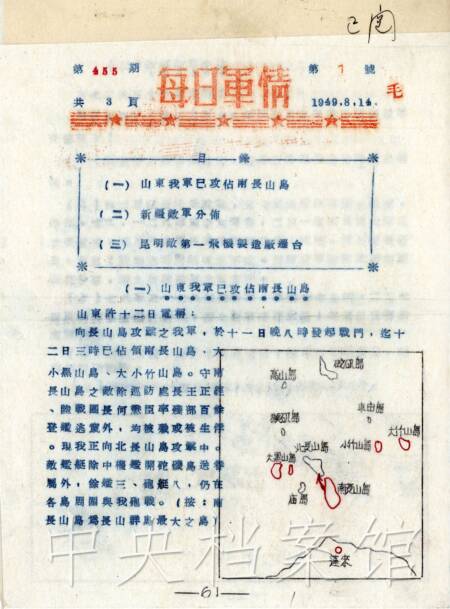 第 455 期
每日軍情
第 7 號
毛
共 3 頁
1949.8.14
目 錄
(一) 山東我軍已攻佔南長山島
(二) 新疆敵軍分佈
(三) 昆明敵第一飛機製造廠遷台
(一) 山東我軍已攻佔南長山島
山東許十二日電稱:
向長山島攻擊之我軍,於十一日晚八時發起戰鬥,迄十
二日三時已佔領南長山島、大
小黑山島、大小竹山島。守南
長山之敵除巡防處長王正經
、陸戰團長何懋臣率殘部百餘
登艦逃竄外,均被殲或被
現我正向北長山攻擊中。
敵艦艇除中
屬外,餘艦三、砲艇八,仍在
各島周圍與我砲戰。(按:南
長山島爲長山群島最大之島)
砣矶島
高山島
車由島
北長山島
小竹山島
大竹山島
大黑山島
廟島
南長山島
蓬萊
—61—
中央档案馆